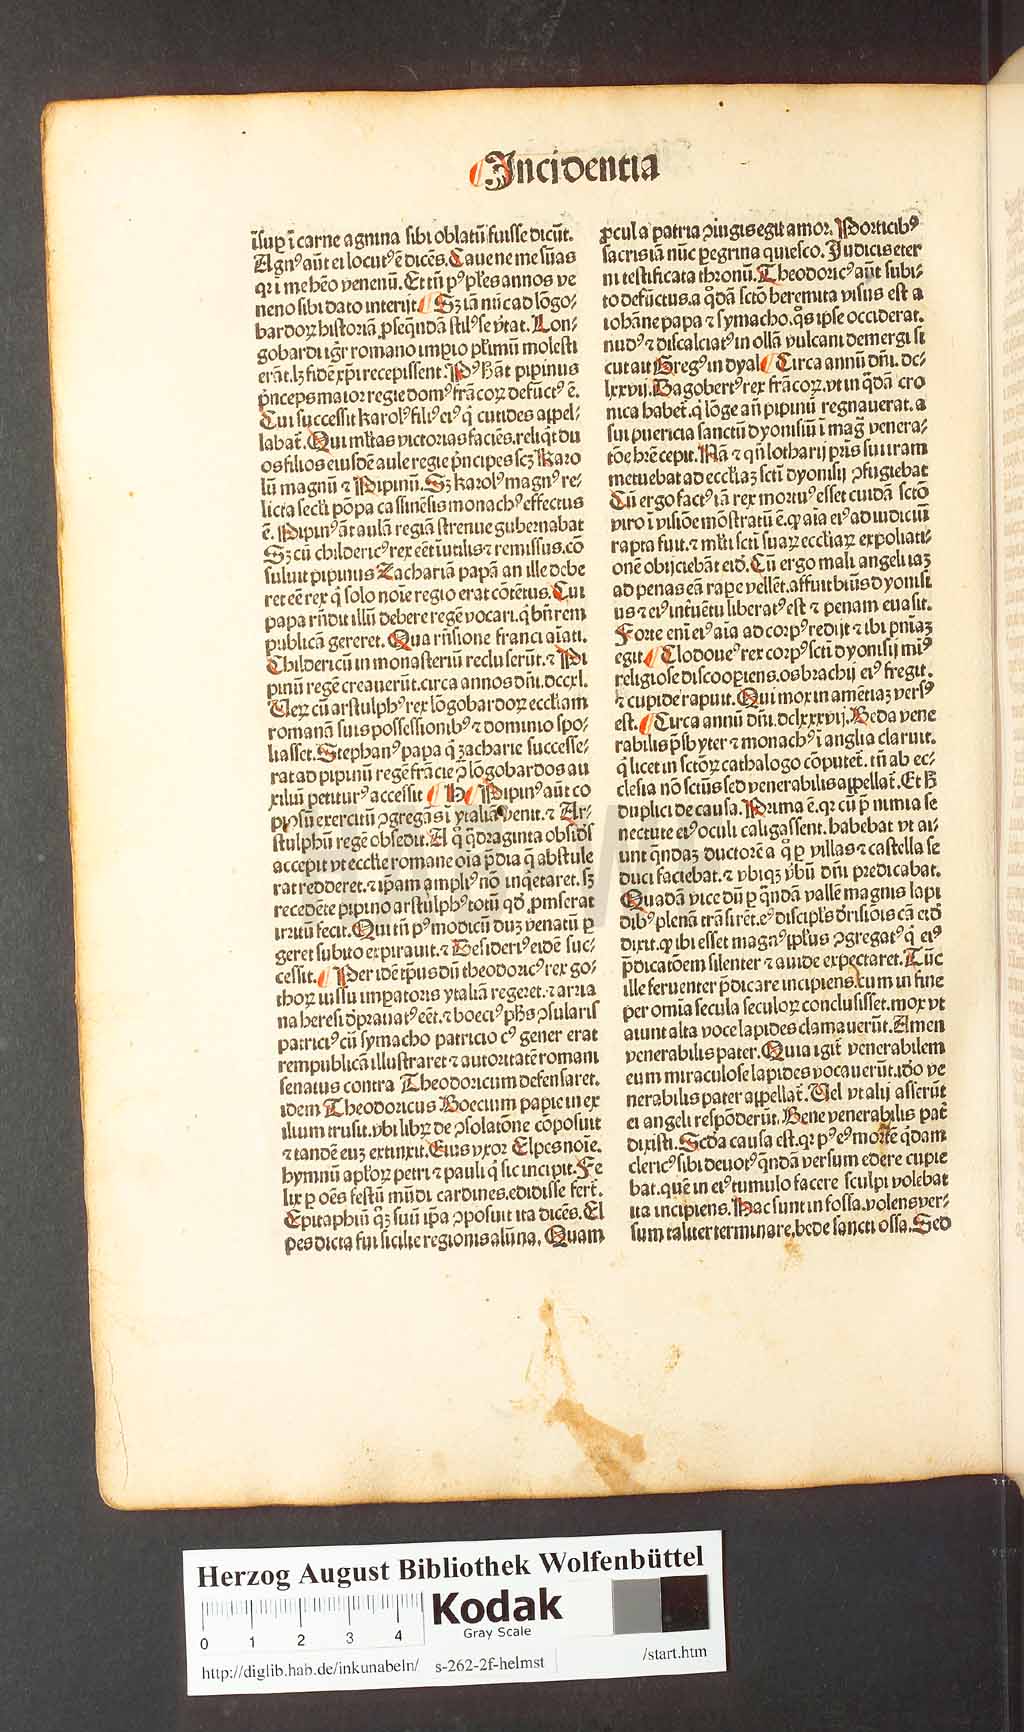 Incidentia
īsup ī carne agnina sibi oblatū fuisse dicūt.
Agnꝰ aūt ei locutꝰ ē dicēs. Caue ne me sūas
qr ī me hēo venenū. Et tn̄ pꝰ pl̄es annos ve
neno sibi dato interijt. Sꝫ iā nūc ad lōgo⸗
bardoꝝ historiā ꝓseq̄ndā stilꝰ se v̄tat. Lon⸗
gobardi igr̄ romano imꝑio pͥmū molesti
erāt. lꝫ fidē xp̄i recepissent. Pꝰ hāt pipinus
pͥnceps maior regie domꝰ frācoꝝ defūctꝰ ē.
Cui successit karolꝰ filiꝰ eiꝰ q̄ cutides appel⸗
labat̄. Qui ml̄tas victorias faciēs. reliqͥt du
os filios eiusdē aule regie pͥncipes scꝫ Karo
lū magnū ⁊ Pipinū. Sꝫ karolꝰ magnꝰ re⸗
licta secl̄i pōpa cassinēsis monachꝰ effectus
ē. Pipinꝰ āt aulā regiā strenue gubernabat
Sꝫ cū childericꝰ rex eēt īutilis ⁊ remissus. cō
suluit pipinus Zachariā papā an ille debe
ret eē rex qͥ solo noīe regio erat cōtētus. Cui
papa rn̄dit illū debere regē vocari. qͥ bn̄ rem
publicā gereret. Qua rn̄sione franci aīati.
Childericū in monasteriū recluserūt. ⁊ Pi
pinū regē creauerūt. circa annos dn̄i. dccxl.
Ueꝝ cū arstulphꝰ rex lōgobardoꝝ ecclīam
romanā suis possessionibꝰ ⁊ dominio spo⸗
liasset. Stephanꝰ papa qͥ zacharie successe⸗
rat ad pipinū regē frācie ꝯ̄ lōgobardos au
xiliū petiturꝰ accessit H Pipinꝰ aūt co
piosū exercitū ꝯgregās ī ytaliā venit. ⁊ Ar⸗
stulphū regē obsedit. A qͦ qͣdraginta obsid̄s
accepit vt eccl̄ie romane oīa p̄dia q̄ abstule
rat redderet. ⁊ ip̄am ampliꝰ nō inqͥetaret. sꝫ
recedēte pipino arstulphꝰ totū qd̄ ꝓmiserat
irritū fecit. Qui tn̄ pꝰ modicū duꝫ venatū ꝑ
geret subito expirauit. ⁊ Desideriꝰ eidē suc⸗
cessit. Per idē tp̄us dū theodoricꝰ rex go⸗
thoꝝ iussu imꝑatoris ytaliā regeret. ⁊ arria
na heresi dp̄rauatꝰ eēt. ⁊ boeciꝰ ph̄s ꝯsularis
patriciꝰ cū symacho patricio cꝰ gener erat
rempublicā illustraret ⁊ autoritatē romani
senatus contra Theodoricum defensaret.
idem Theodoricus Boecium papie in ex
ilium trusit. vbi libꝝ de ꝯsolatōne cōposuit
⁊ tandē euꝫ extinxit. Eius vxor Elpes noīe.
hymnū apl̄oꝝ petri ⁊ pauli q̄ sic incipit. Fe
lix ꝑ oēs festū mūdi cardines. edidisse fert̄.
Epitaphiū qͦꝫ suū ip̄a ꝯposuit ita dicēs. El
pes dicta fui sicilie regionis alūna. Quam
procul a patria ꝯiugis egit amor. Porticibꝰ
sacris iā nūc ꝑegrina quiesco. Judicis eter
ni testificata thronū. Theodoricꝰ aūt subi⸗
to defūctus. a qͦdā sctō heremita visus est a
iohāne papa ⁊ symacho. qͦs ipse occiderat.
nudꝰ ⁊ discalciatꝰ in ollā vulcani demergi si
cut ait Gregꝰ in dyal Circa annū dn̄i. dc⸗
lxxvij. Dagobertꝰ rex frācoꝝ. vt in qͣdā cro
nica habet̄. q̄ lōge an̄ pipinū regnauerat. a
sui puericia sanctū dyonisiū ī mag̈ venera⸗
tōe hr̄e cepit. Nā ⁊ qn̄ lotharij pr̄is sui iram
metuebat ad eccl̄iaꝫ scti dyonisij ꝯfugiebat
Cū ergo factꝰ iā rex mortuꝰ esset cuidā sctō
viro ī visiōe mōstratū ē. qꝙ aīa eiꝰ ad iudiciū
rapta fuit. ⁊ ml̄ti scti suaꝝ eccl̄iaꝝ expoliati⸗
onē obijciebāt eid̄. Cū ergo mali angeli iaꝫ
ad penas eā raꝑe vellēt. affuit btūs dyonisi
us ⁊ eiꝰ intūētu liberatꝰ est ⁊ penam euasit.
Forte eni eiꝰ aīa ad corpꝰ redijt ⁊ ibi pn̄iaꝫ
egit. Clodoueꝰ rex corpꝰ scti dyonisij miꝰ
religiose discooꝑiens. os brachij eiꝰ fregit.
⁊ cupide rapuit. Qui mox in amētiaꝫ versꝰ
est. Circa annū dn̄i. dclxxxvij. Beda vene
rabilis p̄sbyter ⁊ monachꝰ ī anglia claruit.
qͥ licet in sctōꝝ cathalogo cōputet̄. tn̄ ab ec⸗
clesia nō sctūs sed venerabilis appellat̄. Et ꝭ
duplici de causa. Prima ē. qr cū p̄ nimia se
nectute eiꝰ oculi caligassent. habebat vt ai⸗
unt qͥndaꝫ ductorē a qͦ ꝑ villas ⁊ castella se
duci faciebat. ⁊ vbiqꝫ v̄bū dn̄i predicabat.
Quadā vice dū ꝑ qͣndā vallē magnis lapi
dibꝰ plenā trāsiret. eꝰ discipl̄s d̄risiōis cā eid̄
dixit. qꝙ ibi esset magnꝰ ip̄lus ꝯgregatꝰ qͥ eiꝰ
p̄dicatōem silenter ⁊ auide expectaret. Tūc
ille feruenter p̄dicare incipiens. cum in fine
per omia secula seculoꝝ conclusisset. mox vt
aiunt alta voce lapides clamauerūt. Amen
venerabilis pater. Quia igit̄ venerabilem
eum miraculose lapides vocauerūt. iđo ve
nerabilis pater appellat̄. Uel vt alij asserūt
ei angeli respōderūt. Bene venerabilis pat̄
dixisti. Scd̄a causa est. qr pꝰ eꝰ mortē qͥdam
clericꝰ sibi deuotꝰ qͥndā versum edere cupie
bat. quē in eiꝰ tumulo facere sculpi volebat
ita incipiens. Hac sunt in fossa. volens ver⸗
sum taliter terminare. bede sancti ossa. Sed
Herzog August Bibliothek Wolfenbüttel
0 1 2 3 4
Kodak
Gray Scale
http://diglib.hab.de/inkunabeln/ s-262-2f-helmst /start.htm